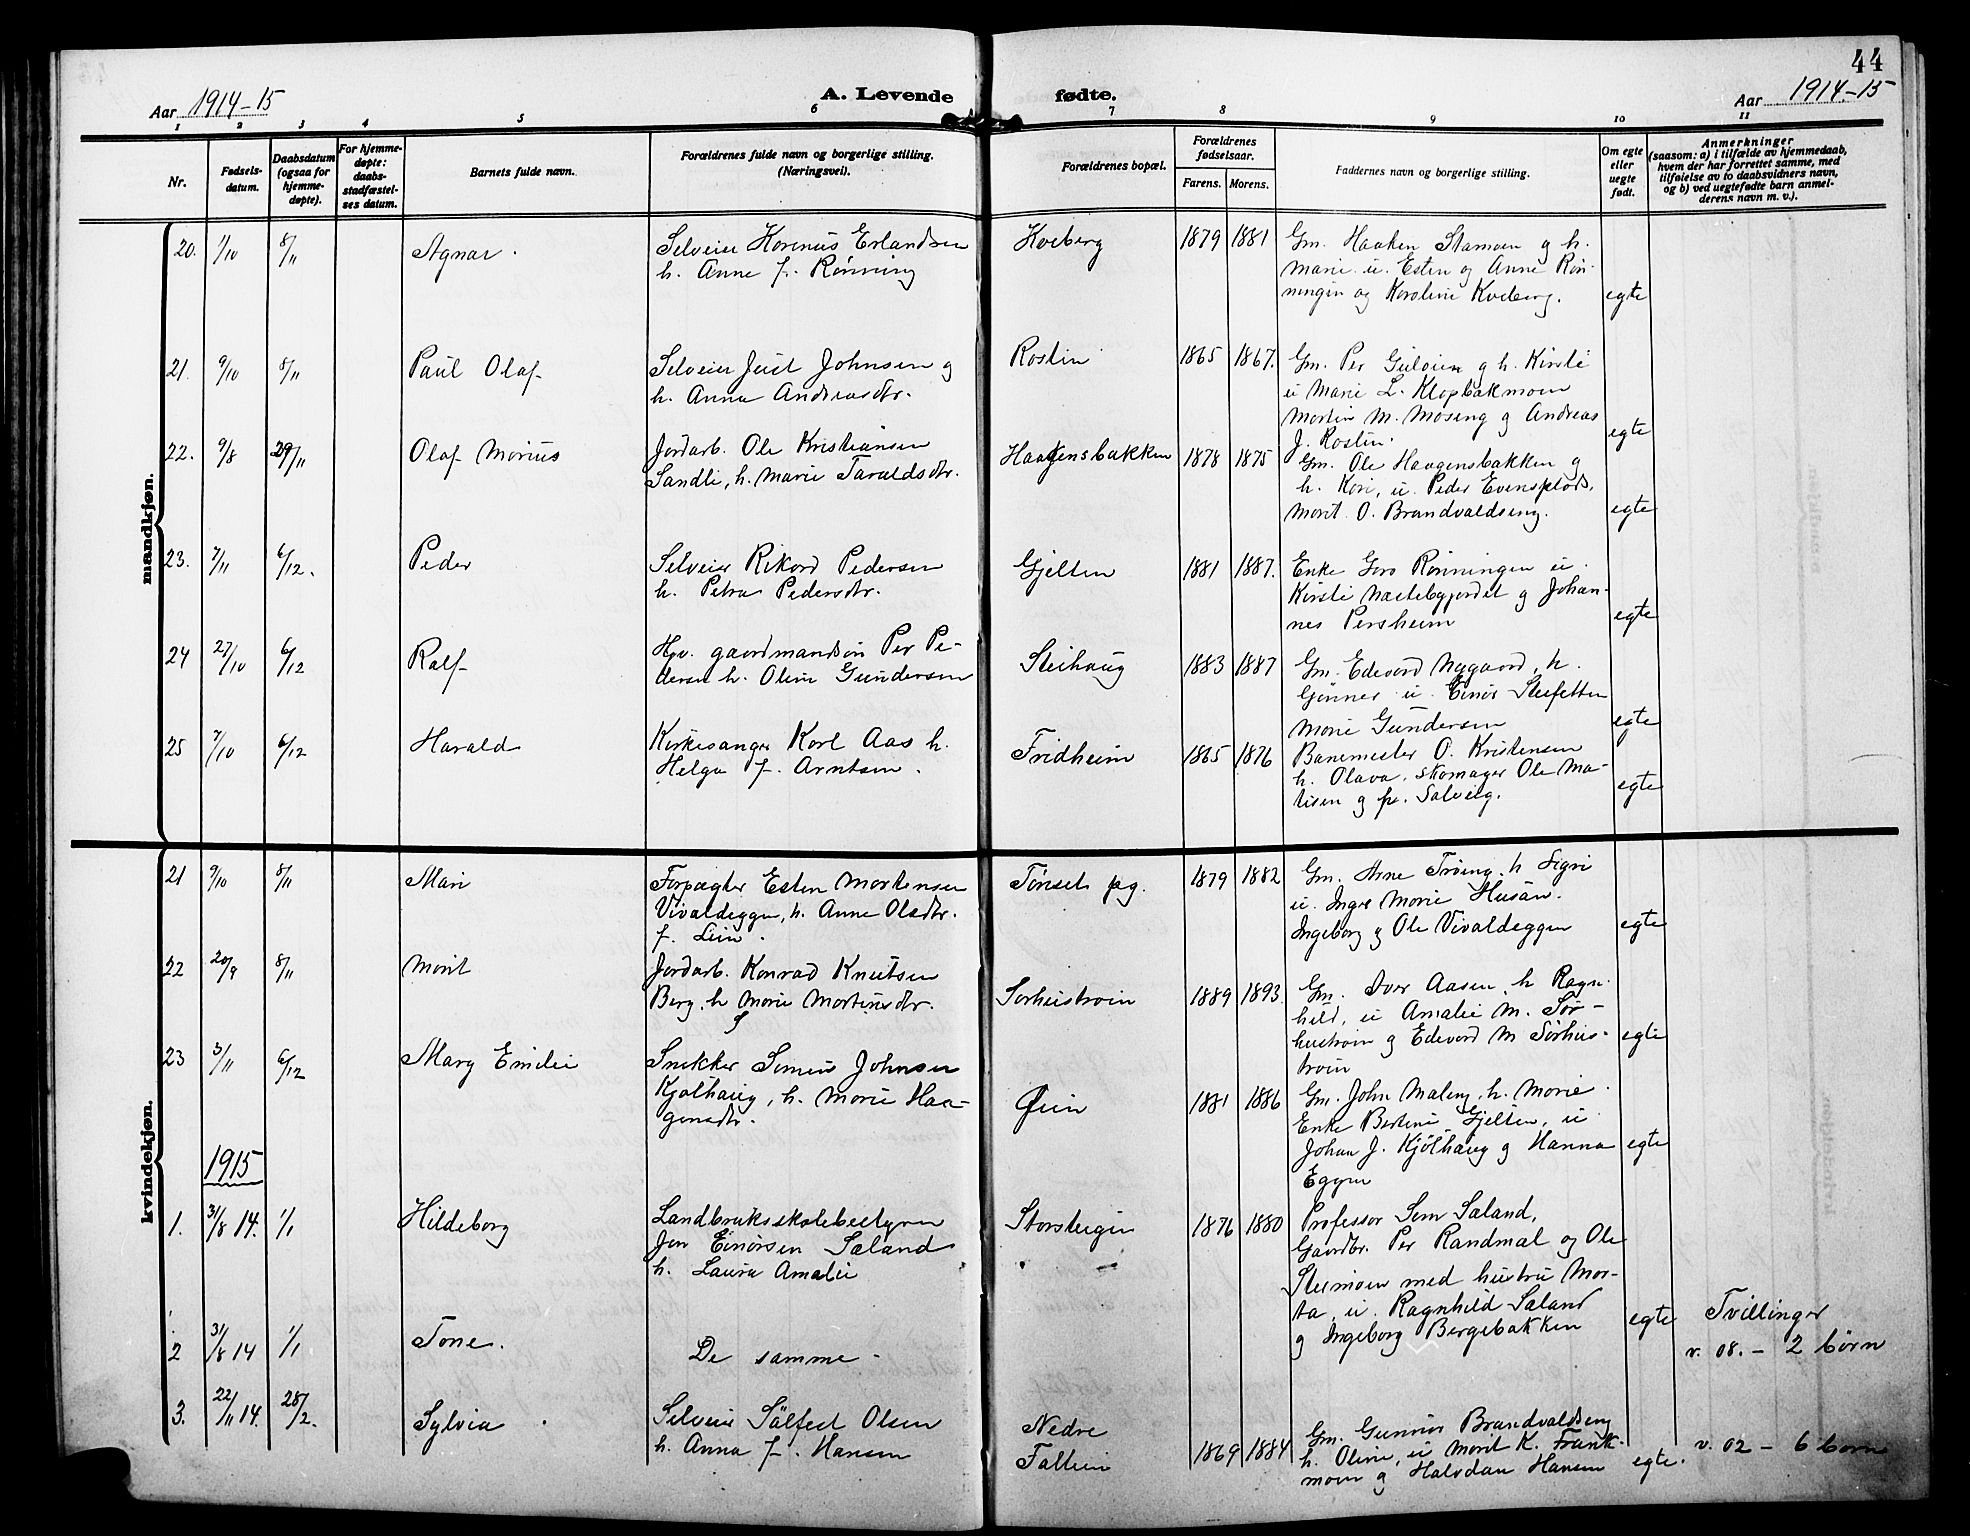 44
Aar 1914-15
A. Levende fødte.
Aar 1914-15
1 2 3 4 5 6 7 8 9 10 11
Nr.
Fødsels-
datum.
Daabsdatum
(ogsaa for
hjemme-
døpte).
For hjemme-
døpte:
daabs-
stadfæstel-
ses datum.
Barnets fulde navn.
Forældrenes fulde navn og borgerlige stilling.
(Næringsvei).
Forældrenes bopæl.
Forældrenes
fødselsaar.
Farens. Morens.
Faddernes navn og borgerlige stilling.
Om egte
eller
uegte
født.
Anmerkninger
(saasom: a) i tilfælde av hjemmedaab,
hvem der har forrettet samme, med
tilføielse av to daabsvidners navn,
og b) ved uegtefødte barn anmel-
derens navn m. v.).
mandkjøn.
20. 1/10 8/11 Agnar. Selveier Korenus Erlandsen Kveberg 1879 1881 Gm. Haaken Stamoen g h.
h. Anne f. Rønning
Marie. u. Esten og Anne Røn-
ningen og Karoline Kveberg. egte
21. 9/10 8/11 Paul Olaf Selveier Just Johnsen g Rostin 1865 1867. Gm. Per Gulvien g h. Kirsti
h. Anna Andreasdtr.
u Marie L. Klopbakmoen
Martin M. Moseng g Andreas
J. Rostin. egte
22. 9/8 29/11 Olaf Marius Jordarb. Ole Kristiansen Haagensbakken 1878 1875 Gm. Ole Haagensbakken g
Sandli, h. Marie Taraldsdtr.
h. Kari, u. Peder Evensplads,
Marit O. Brandvaldseng. egte
23. 7/11 6/12. Peder Selveier Rikard Pedersen Gjelten 1881 1887. Enke Goro Rønningen u.
h. Petra Pedersdtr.
Kirsti Næstebygjordet g Johan-
nes Persheim egte
24 27/10 6/12 Ralf Hpv. gaardmandsøn Per Pe- Steihaug 1883 1887 Gm. Edevard Nygaard, h.
dersen h. Oline Gundersen
Gunner u. Einar Steifetten
Marie Gundersen egte
25 7/10 6/12 Harald Kirkesanger Karl Aas h. Fridheim 1865 1876 Banemester O. Kristensen
Helga f. Arntsen.
h. Olava, skomager Ole Ma-
tisen g fr. Salveig. egte
kvindekjøn.
21 9/10 8/11 Mari Forpagter Esten Mortensen Tønset pg. 1879 1882 Gm. Arne Trøeng, h Sigri
Vivaldeggen, h. Anne Olsdtr.
u. Inger Marie Husan.
f. Lien.
Ingeborg g Ole Vivaldeggen egte
22 20/9 8/11 Marit Jordarb. Konrad Knutsen Sørhustroin 1889 1893. Gm. Iver Aasen, h Ragn-
Berg, h Marie Martinusdtr.
hild, u Amalie M. Sør-
hustroin g Edevard M Sørhus-
troin egte
23 3/11 6/12 Mary Emilie Snekker Simen Johnsen Øien 1881 1886 Gm. John Maleng, h. Marie.
Kjølhaug, h. Marie Haa-
Enke Bertine Gjelten, u
gensdtr.
Johan J. Kjølhaug g Hanna
Eggen egte
1915
1. 31/8 14. 1/1 Hildeborg Landbruksskolebestyrer Storsteigen 1876 1880 Professor Sem Sæland,
Jon Einarsen Sæland
Gaardbr. Per Randmæl og Ole
h. Laura Amalie
Steimoen med hustru Mar-
ta, u. Ragnhild Sæland
g Ingeborg Bergebakken egte Tvillinger
v. 08. - 2 børn
2 31/8 14 1/1 Tone. De samme -
3. 22/11 14. 28/2. Sylvia. Selveier Sølfest Olsen Nedre 1869 1884 Gm. Gunnar Brandvaldseng
h. Anna f. Hansen Fallien
h. Oline, u Marit K. Trønk-
moen g Halvdan Hansen egte. v. 02 - 6 børn